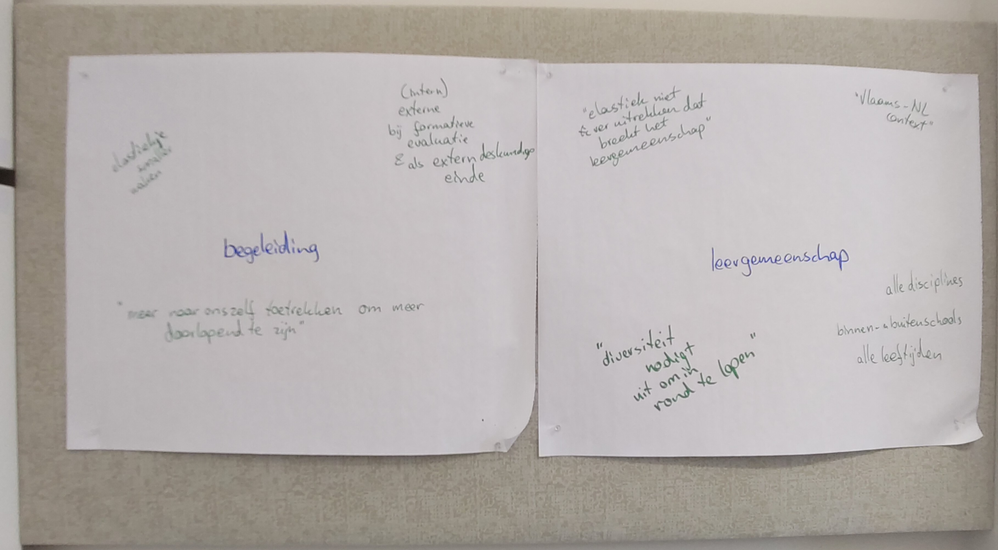 elastiekje
smaller
maken
(intern)
externe
bij formatieve
evaluatie
& als extern deskundige
einde
begeleiding
"meer naar onszelf toetrekken om meer
doorlopend te zijn"
"elastiek niet
te ver uitrekken dat
breekt het
leergemeenschap"
"Vlaams-NL
context"
leergemeenschap
alle disciplines
binnen- & buitenschools
alle leeftijden
"diversiteit
nodigt
uit om in
rond te lopen"